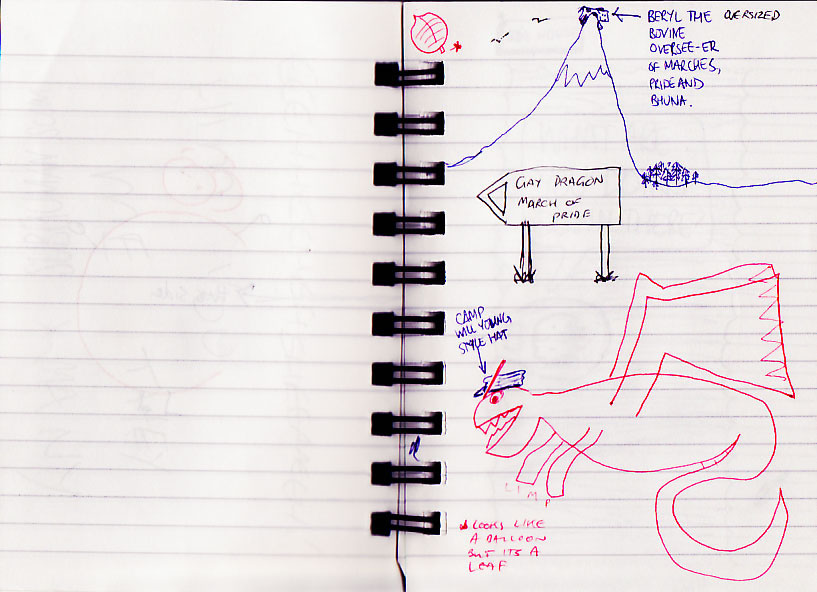 BERYL THE OVERSIZED
BOVINE
OVERSEE-ER
OF MARCHES,
PRIDE AND
BHUNA.
GAY DRAGON
MARCH OF
PRIDE
CAMP
WILL YOUNG
STYLE HAT
LIMP
LOOKS LIKE
A BALLOON
BUT ITS A
LEAF